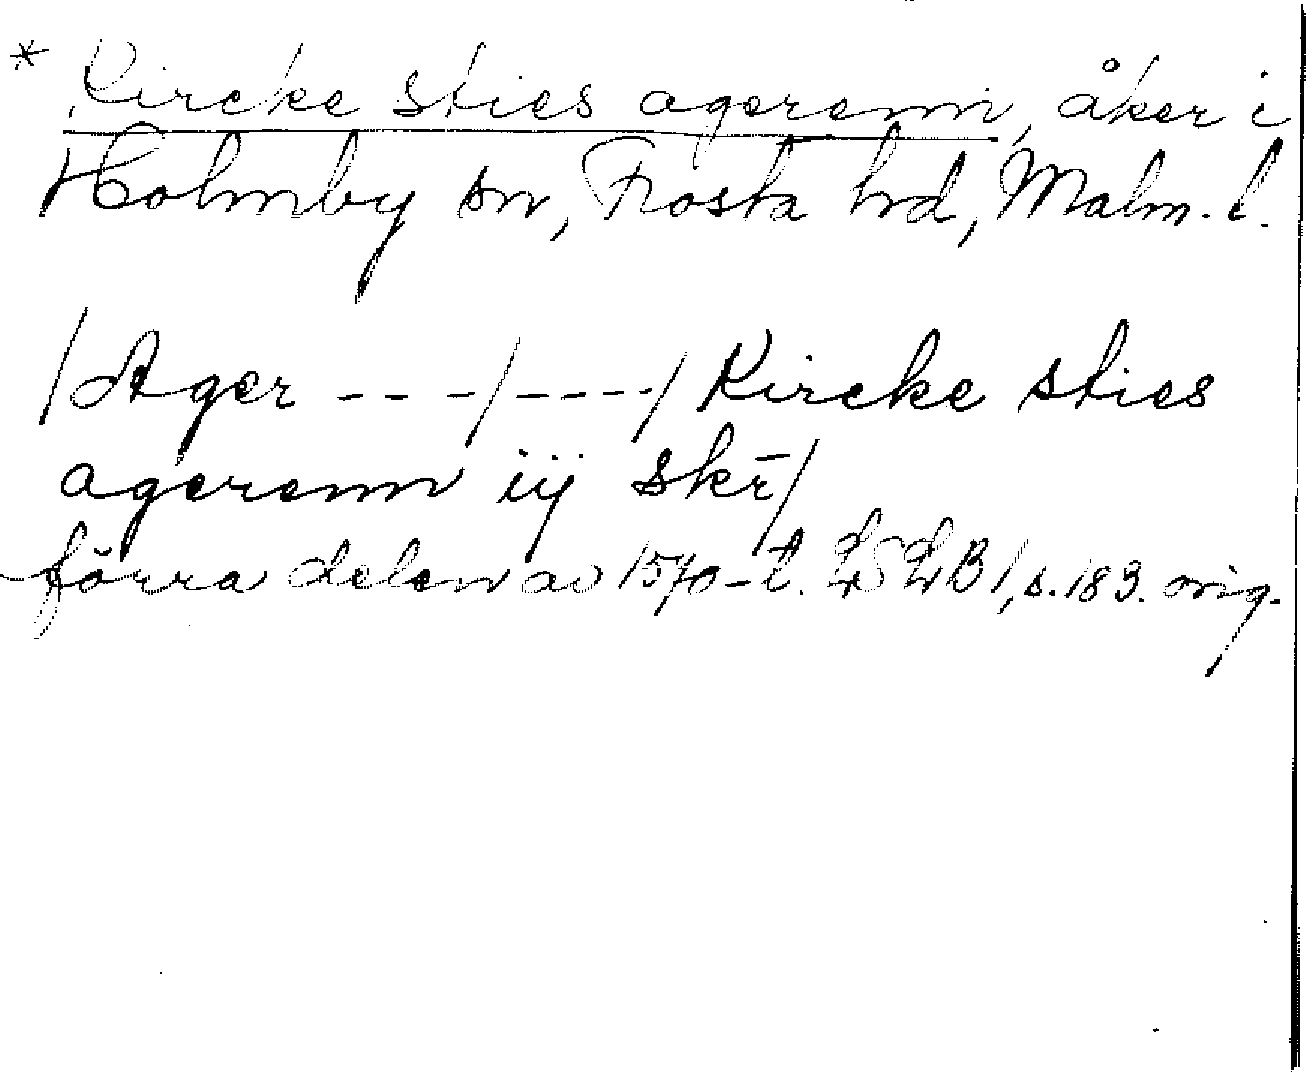 * Kircke sties agerenn, åker i
Holmby sn, Frosta hd, Malm. l.
/Ager - - - / - - - - / Kircke sties
agerenn iij skr̄/
förra delen av 1570-t. LSLB 1, s. 183. orig.